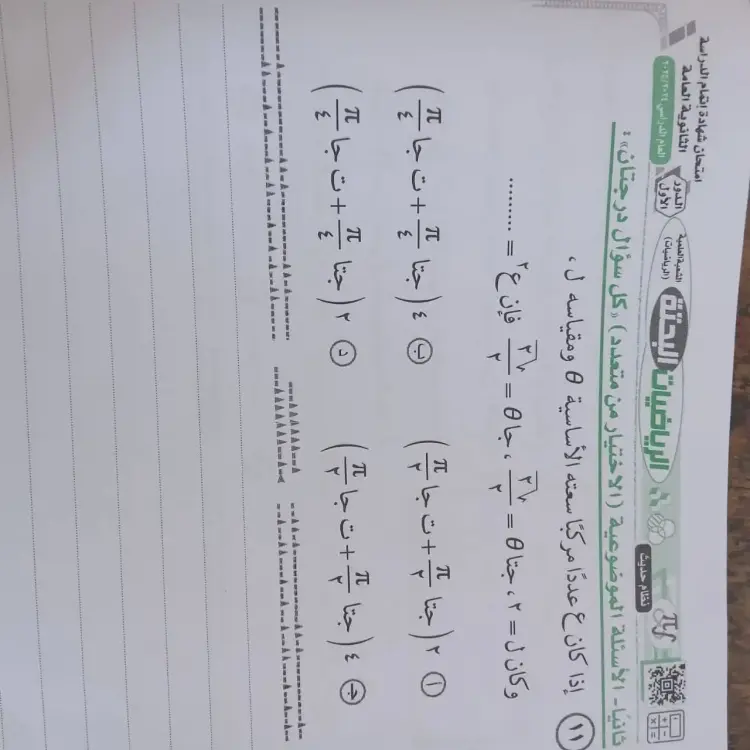 امتحان شهادة إتمام الدراسة
الثانوية العامة
العام الدراسي ٢٠٢٤/٢٠٢٣
الدور الأول
الشعبة العلمية (الرياضيات)
الرياضيات البحتة
نظام حديث
ثانيًا - الأسئلة الموضوعية (الاختيار من متعدد) «كل سؤال درجتان» :
١١ إذا كان ع عددًا مركبًا سعته الأساسية θ ومقياسه ل ،
وكان ل = ٢ ، جتا θ = √٢/٢ ، جا θ = √٢/٢ فإن ع٢ = .........
أ ٢ (جتا π/٢ + ت جا π/٢)
ب ٤ (جتا π/٤ + ت جا π/٤)
ج ٤ (جتا π/٢ + ت جا π/٢)
د ٢ (جتا π/٤ + ت جا π/٤)